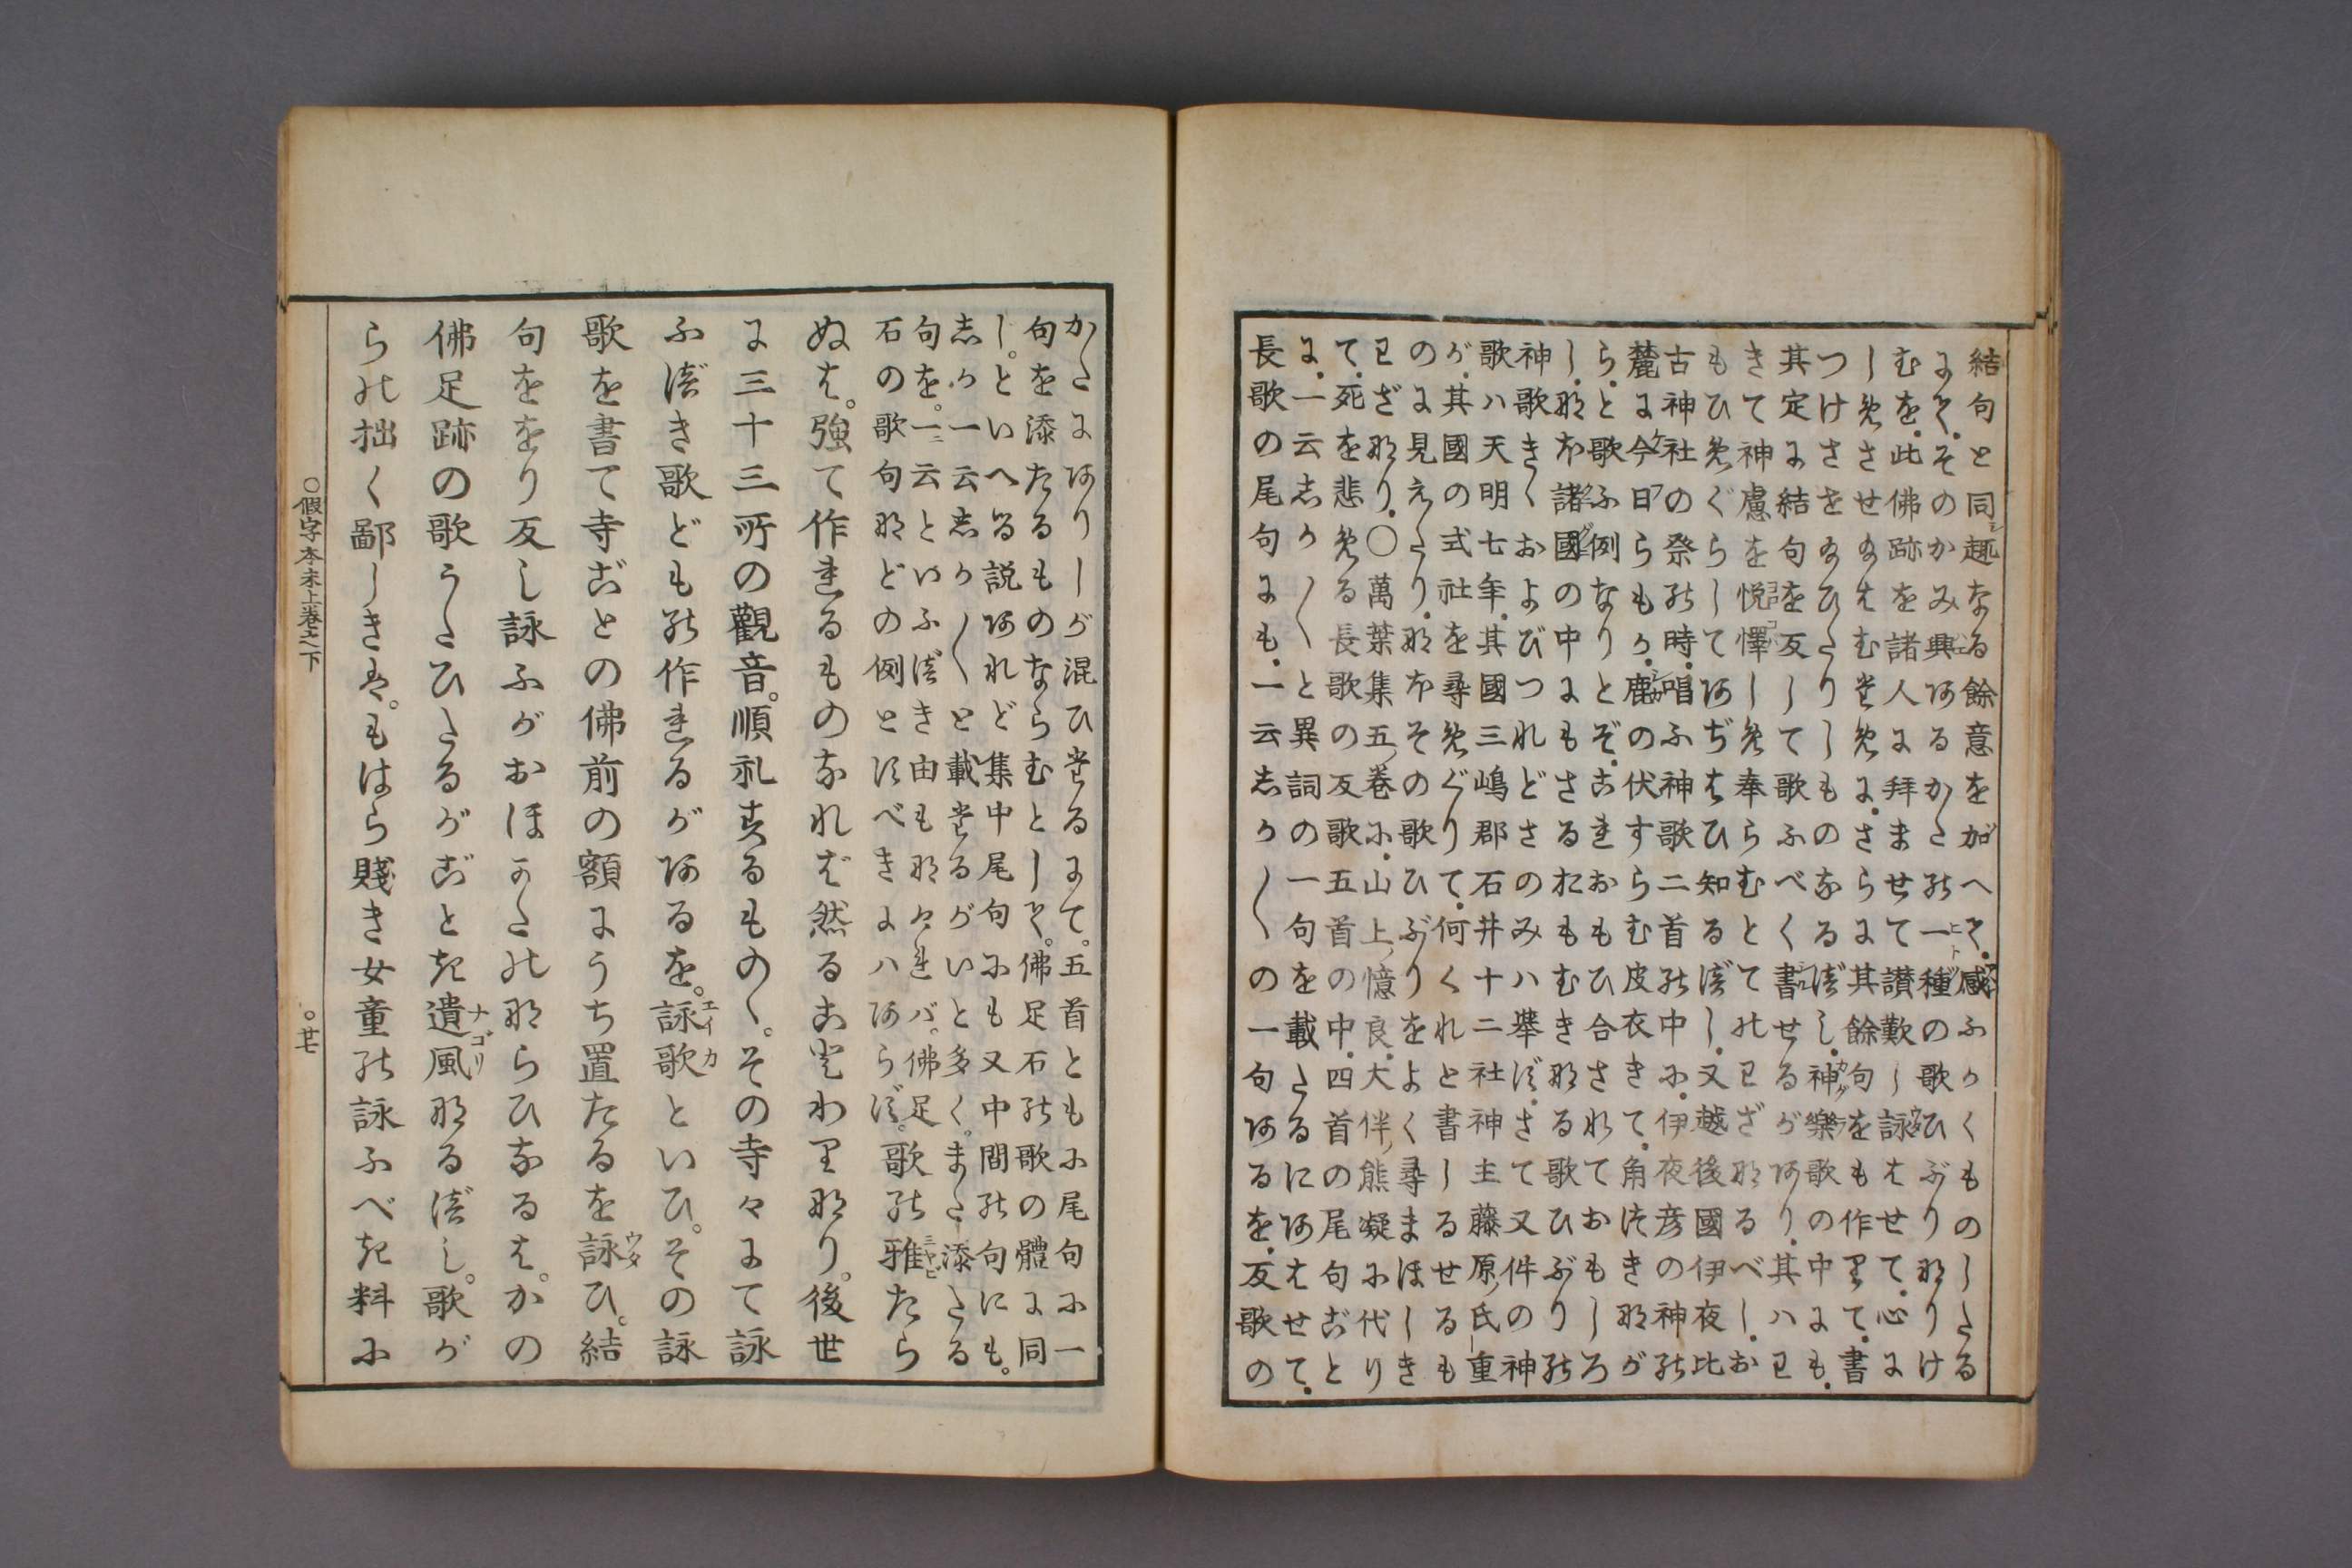 結句と同趣なる餘意をガへて感ふかくものしたる
にて。そのかみ興ある かたの一種の歌ひぶりなりけ
むを。此佛跡を諸人に拜ませて讃歎し詠はせて。心に
しめさせたまはむために。さらに其餘句をも作りて。書
つけさをたまひたりしものなるべし。神樂歌の中にも。
其定に結句を反して歌ふべく書せるがあり。其ハわ
きて神慮を悦懌しめ奉らむとてのわざなるべし。お
もひめぐらしてあぢはひ知るべし。又越後國伊夜比
古神社の祭の時。唱ふ神歌二首の中に。伊夜彦の神の
麓に今日らもか。鹿の伏すらむ皮衣きて。角つきなが
ら。と歌ふ例なりとぞ。これおもひ合されておもしろ
し。なほ諸國の中にもさるおもむきなる歌ひぶりの
神歌きくおよびつれどさのみハ擧ず。さて又件の神
歌ハ天明七年。其國三嶋郡石井十二社神主藤原氏重
が。其國の式社を尋めぐりて。何くれと書しるせるも
のに見えたり。なほその歌ひぶりをよく尋まほしき
わざなり。○萬葉集五ノ巻に。山上ノ憶良。大伴ノ熊凝に代り
て。死を悲める長歌の反歌五首の中。四首の尾句ごと
に。一云志かしかと異詞の一句を載たるにあはせて。
長歌の尾句にも。一云志かしかの一句あるを。反歌の
かたにありしが混ひたるにて。五首ともに尾句に一
句を添たるものならむとして。佛足石の歌の體に同
し。といへる説あれど集中尾句にも又中間の句にも。
志か一云志かしかと載たるがいと多く。また添たる
句を。一云といふべき由もなければ。佛足
石の歌句などの例とすべきにハあらず。歌の雅たら
ぬは。強て作れるものなれば然ることわりなり。後世
に三十三所の觀音。順礼するものゝ。その寺々にて詠
ふべき歌どもの作れるがあるを。詠歌といひ。その詠
歌を書て寺ごとの佛前の額にうち置たるを詠ひ。結
句ををり反し詠ふがおほかたのならひなるは。かの
佛足跡の歌うたひたるがごとき遺風なるべし。歌が
らの拙く鄙しきは。もはら賤き女童の詠ふべき料に
○假字本末上巻之下 ○廿七